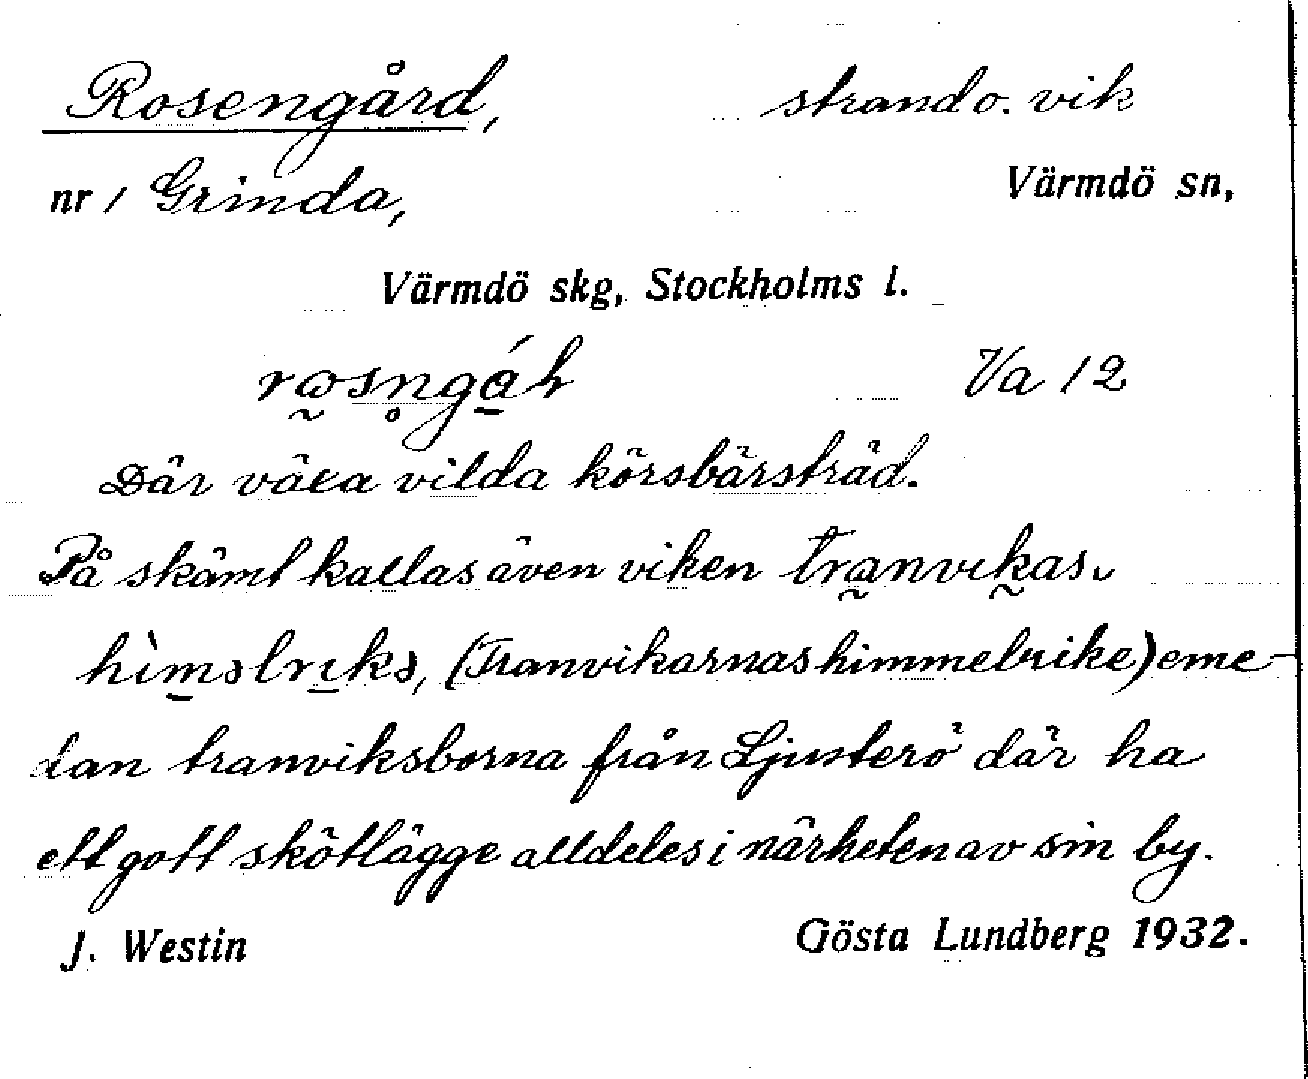 Rosengård, strand o. vik
nr 1 Grinda, Värmdö sn,
Värmdö skg, Stockholms l.
Va 12
Där växa vilda körsbärsträd.
På skämt kallas även viken
(Tranvikarnas himmelrike) eme-
dan tranviksborna från Ljusterö där ha
ett gott skötlägge alldeles i närheten av sin by.
J. Westin Gösta Lundberg 1932.